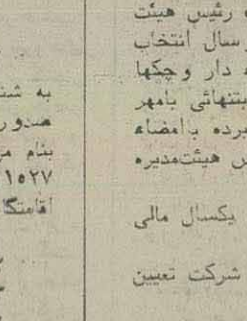 رئیس هیئت
سال انتخاب
دار و چکها
بتنهائی بامهر
برده باامضاء
هیئت‌مدیره
یکسال مالی
شرکت تعیین
به
صدور
بنام
۱۵۲۷